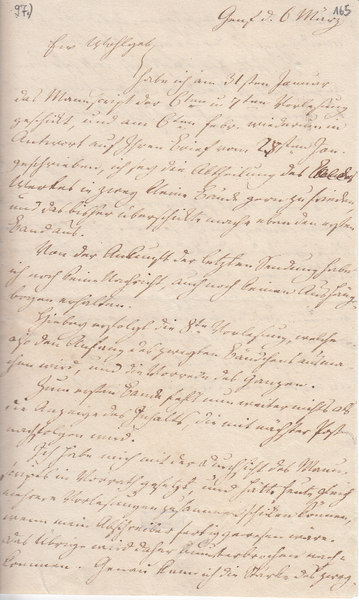 97)
165
Genf d. 6 März
Ew Wohlgeb.
habe ich am 31sten Januar
das Manuscript der 6ten u 7ten Vorlesung
geschickt, und am 6ten febr. wiederum in
Antwort auf Ihren Brief vom 23sten Jan.
geschrieben, ich sey die Abtheilung des
Werkes in zwey kleine Bände gern zufrieden
und das bisher überschickte mache eben den ersten
Band aus.
Von der Ankunft der letzten Sendung habe
ich noch keine Nachricht, auch noch keinen Aushänge-
bogen erhalten.
Hiebey erfolgt die 8te Vorlesung, welche
also den Anfang des zweyten Bändchens ausma-
chen wird, und die Vorrede des Ganzen.
Zum ersten Bande fehlt nun weiter nichts als
die Anzeige des Inhalts, die mit nächster Post
nachfolgen wird.
Ich habe mich mit der Durchsicht des Manu-
scripts in Vorrath gesetzt, und hätte heute gleich
mehrere Vorlesungen zusammen schicken können,
wenn mein Abschreiber fertig gewesen wäre.
Das Übrige wird daher ununterbrochen nach-
kommen. Genau kann ich die Stärke des zwey-